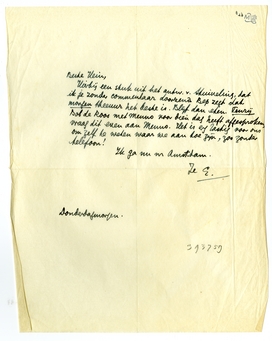 Beste Hein,
Hierbij een stuk uit het antw. v. Stuiveling, dat
ik je zonder commentaar doorzend. Bep zegt dat
morgen theeuur het beste is. Blijf dan eten. Tenzij
Bob de Roos met Menno voor dien dag heeft afgesproken
vraag dit even aan Menno. Het is erg lastig voor ons
om zelf te weten waar we aan toe zijn, zoo zonder
telefoon!
Ik ga nu nr Amsterdam.
Je E.
Donderdagmorgen.